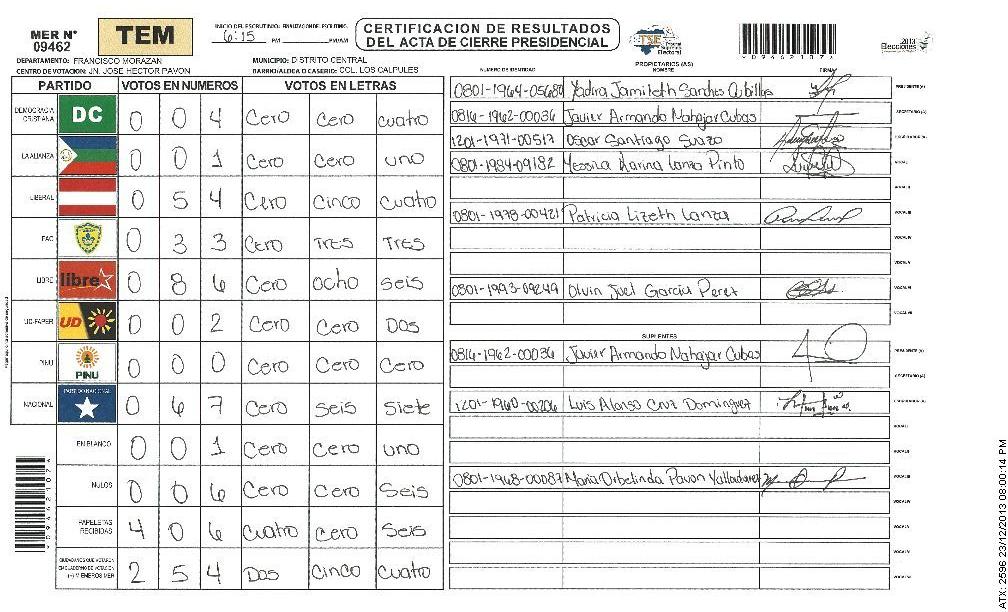 MER N° 09462
TEM
INICIO DEL ESCRUTINIO: 6:15 PM
FINALIZACION DEL ESCRUTINIO. PM/AM
CERTIFICACION DE RESULTADOS
DEL ACTA DE CIERRE PRESIDENCIAL
TSE Tribunal Supremo Electoral
2013
Elecciones
DEPARTAMENTO: FRANCISCO MORAZAN
MUNICIPIO: DISTRITO CENTRAL
CENTRO DE VOTACION: JN. JOSE HECTOR PAVON
BARRIO/ALDEA O CASERIO: COL. LOS CALPULES
PARTIDO VOTOS EN NUMEROS VOTOS EN LETRAS
DEMOCRACIA CRISTIANA DC 0 0 4 Cero Cero cuatro
LA ALIANZA 0 0 1 Cero Cero uno
LIBERAL 0 5 4 Cero Cinco Cuatro
FAC 0 3 3 Cero Tres Tres
LIBRE libre 0 8 6 Cero ocho seis
UD-FAPER UD 0 0 2 Cero Cero Dos
PINU PINU 0 0 0 Cero Cero Cero
NACIONAL PARTIDO NACIONAL 0 6 7 Cero Seis Siete
EN BLANCO 0 0 1 Cero Cero uno
NULOS 0 0 6 Cero Cero Seis
PAPELETAS RECIBIDAS 4 0 6 Cuatro cero Seis
CIUDADANOS QUE VOTARON EN CUADERNO DE VOTACION (+) MIEMBROS MER 2 5 4 Dos Cinco Cuatro
PROPIETARIOS (AS)
NUMERO DE IDENTIDAD NOMBRE FIRMA
0801-1964-05680 Yadira Jamileth Sanches Cubillas PRESIDENTE (A)
0816-1962-00036 Javier Armando Nahajar Cubas SECRETARIO (A)
1201-1971-00517 Oscar Santiago Suazo
0801-1984-09182 Yessica Karina Lanza Pinto VOCAL I
VOCAL II
0801-1978-00421 Patricia Lizeth Lanza VOCAL III
VOCAL IV
VOCAL V
0801-1993-09249 Olvin Joel Garcia Perez VOCAL VI
VOCAL VII
SUPLENTES
0816-1962-00036 Javier Armando Nahajar Cubas PRESIDENTE (A)
SECRETARIO (A)
1201-1960-00206 Luis Alonso Cruz Dominguez
VOCAL I
VOCAL II
0801-1968-00087 Maria Orbelinda Pavon Valladarez VOCAL III
VOCAL IV
VOCAL V
VOCAL VI
VOCAL VII
ATX: 2596 23/12/2013 08:00:14 PM